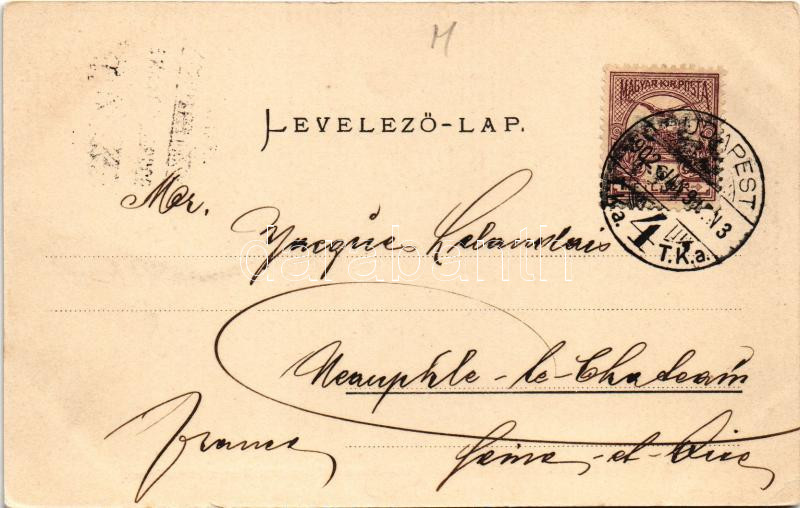 M
LEVELEZŐ-LAP.
MAGYAR KIR. POSTA
BUDAPEST
4
T.K.a.
Mr.
Jacques Lelandais
darabanth
Neauphle-le-Chateau
France
Seine-et-Oise